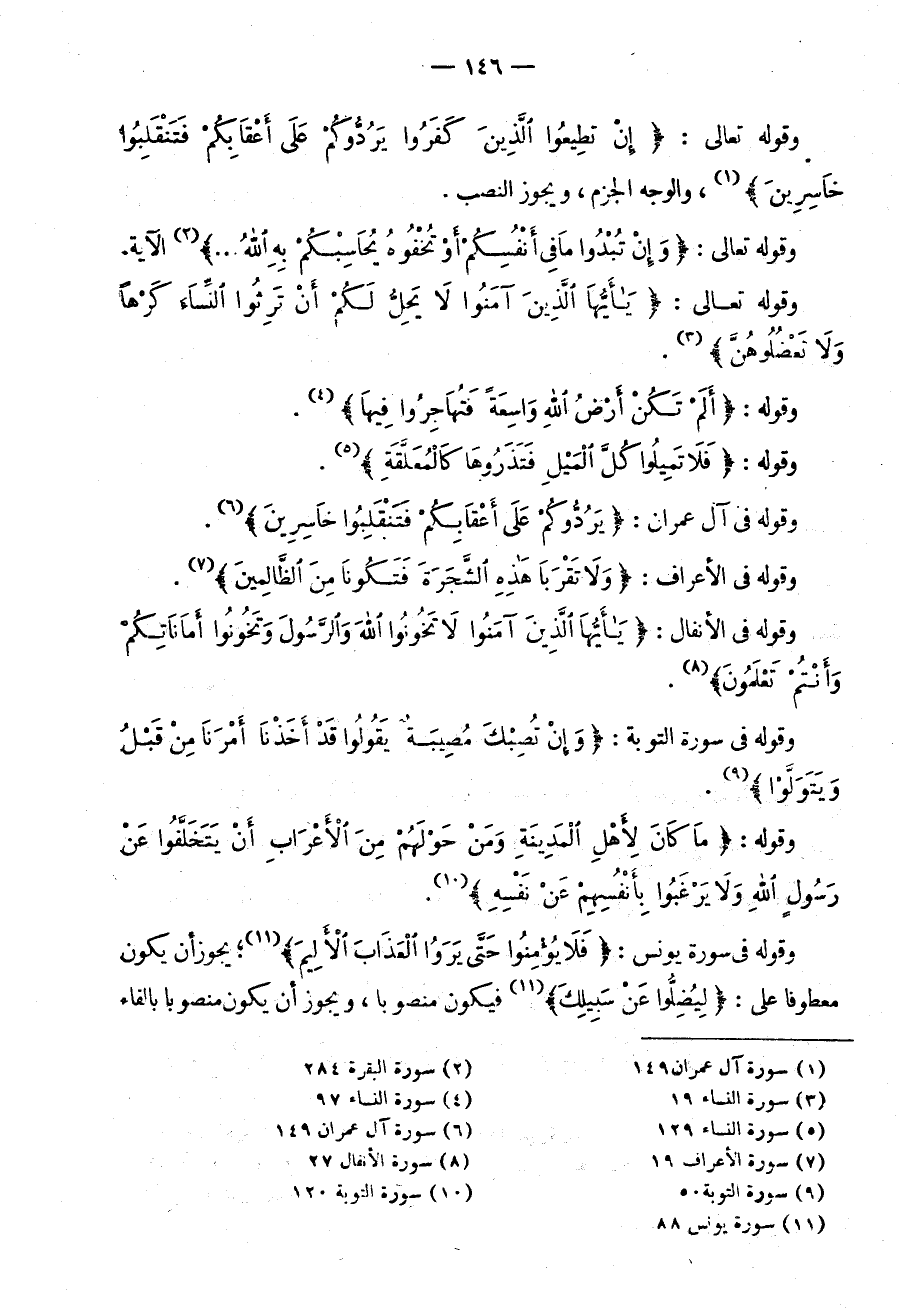 — ١٤٦ —
وقوله تعالى : ﴿ إِنْ تطِيعُوا ٱلَّذِينَ كَفَرُوا يَرُدُّوكُمْ عَلَى أَعْقَابِكُمْ فَتَنْقَلِبُوا
خَاسِرِينَ ﴾(١) ، والوجه الجزم ، ويجوز النصب .
وقوله تعالى : ﴿ وَإِنْ تُبْدُوا مَافِى أَنْفُسِكُمْ أَوْ تُخْفُوهُ يُحَاسِبْكُمْ بِهِ ٱللهُ ...﴾(٢) الآية.
وقوله تعالى : ﴿ يَـٰأَيُّهَا ٱلَّذِينَ آمَنُوا لَا يَحِلُّ لَكُمْ أَنْ تَرِثُوا النِّسَاءَ كَرْهًا
وَلَا تَعْضُلُوهُنَّ ﴾(٣) .
وقوله : ﴿ أَلَمْ تَكُنْ أَرْضُ ٱللهِ وَاسِعَةً فَتُهَاجِرُوا فِيهَا ﴾(٤) .
وقوله : ﴿ فَلَا تَمِيلُوا كُلَّ ٱلْمَيْلِ فَتَذَرُوهَا كَالْمُعَلَّقَةِ ﴾(٥) .
وقوله فى آل عمران : ﴿ يَرُدُّوكُمْ عَلَى أَعْقَابِكُمْ فَتَنْقَلِبُوا خَاسِرِينَ ﴾(٦) .
وقوله فى الأعراف : ﴿ وَلَا تَقْرَبَا هَٰذِهِ ٱلشَّجَرَةَ فَتَكُونَا مِنَ ٱلظَّالِمِينَ ﴾(٧) .
وقوله فى الأنفال : ﴿ يَـٰأَيُّهَا ٱلَّذِينَ آمَنُوا لَا تَخُونُوا ٱللهَ وَٱلرَّسُولَ وَتَخُونُوا أَمَانَاتِكُمْ
وَأَنْتُمْ تَعْلَمُونَ﴾(٨) .
وقوله فى سورة التوبة : ﴿ وَإِنْ تُصِبْكَ مُصِيبَةٌ يَقُولُوا قَدْ أَخَذْنَا أَمْرَنَا مِنْ قَبْلُ
وَيَتَوَلَّوْا ﴾(٩) .
وقوله : ﴿ مَا كَانَ لِأَهْلِ ٱلْمَدِينَةِ وَمَنْ حَوْلَهُمْ مِنَ ٱلْأَعْرَابِ أَنْ يَتَخَلَّفُوا عَنْ
رَسُولِ ٱللهِ وَلَا يَرْغَبُوا بِأَنْفُسِهِمْ عَنْ نَفْسِهِ ﴾(١٠).
وقوله فى سورة يونس : ﴿ فَلَا يُؤْمِنُوا حَتَّى يَرَوُا ٱلْعَذَابَ ٱلْأَلِيمَ﴾(١١)؛ يجوز أن يكون
معطوفا على : ﴿ لِيُضِلُّوا عَنْ سَبِيلِكَ﴾(١١) فيكون منصوبا ، ويجوز أن يكون منصوبا بالفاء
(١) سورة آل عمران ١٤٩ (٢) سورة البقرة ٢٨٤
(٣) سورة النساء ١٩ (٤) سورة النساء ٩٧
(٥) سورة النساء ١٢٩ (٦) سورة آل عمران ١٤٩
(٧) سورة الأعراف ١٩ (٨) سورة الأنفال ٢٧
(٩) سورة التوبة ٥٠ (١٠) سورة التوبة ١٢٠
(١١) سورة يونس ٨٨